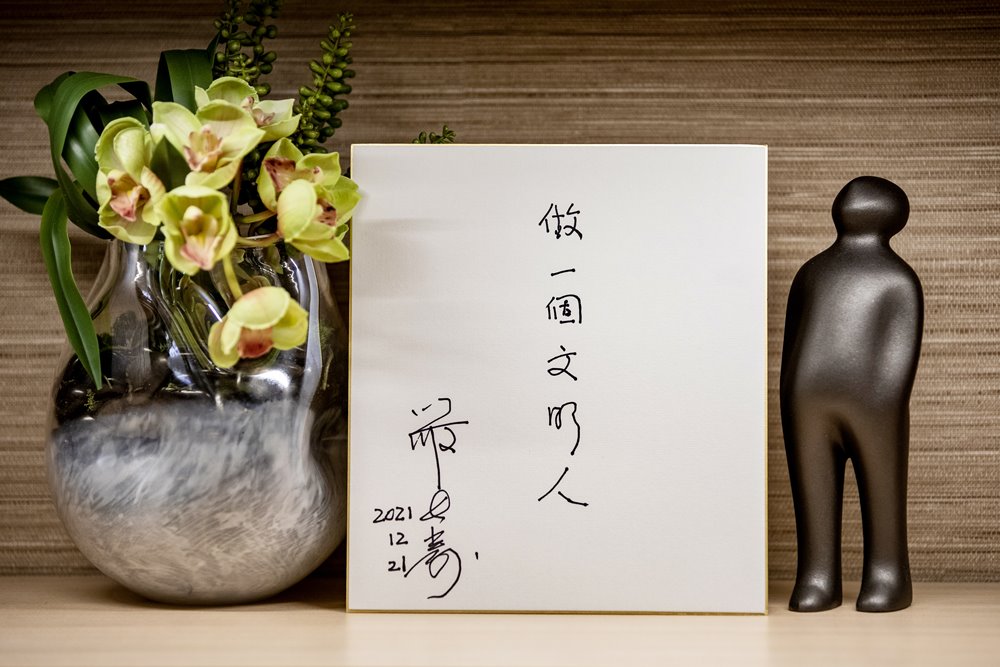 做一個文明人
嚴長壽
2021
12
21